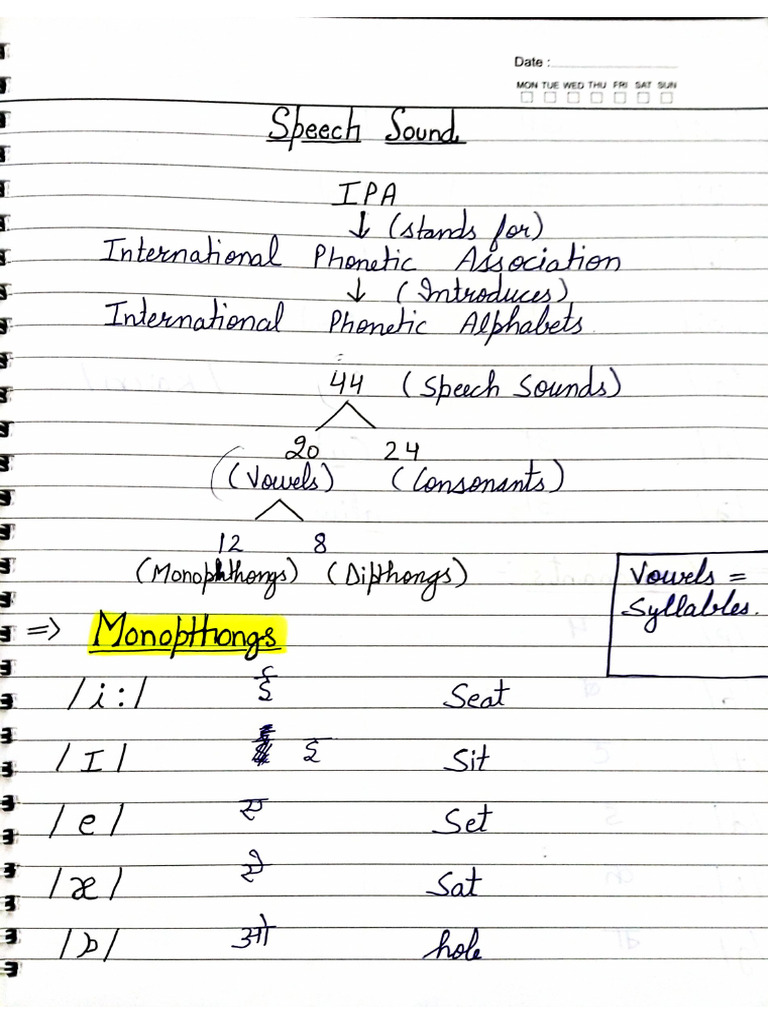 Date :
MON TUE WED THU FRI SAT SUN
Speech Sound
IPA
↓ (stands for)
International Phonetic Association
↓ (Introduces)
International Phonetic Alphabets
44 (Speech Sounds)
20 24
(Vowels) (Consonants)
12 8
(Monophthongs) (Dipthongs)
Vowels =
Syllables.
⇒ Monopthongs
/i:/ ई Seat
/I/ इ Sit
/e/ ए Set
/æ/ ऐ Sat
/ɒ/ ओ hole